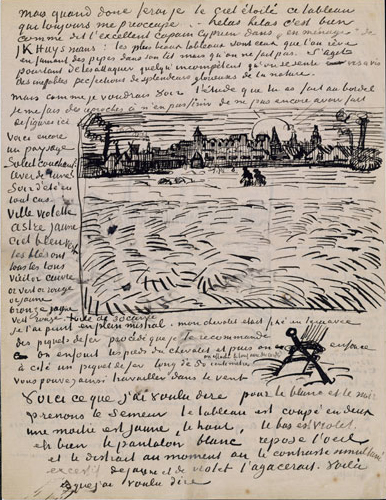 mais quand donc ferai je le Ciel étoilé ce tableau
qui toujours me préoccupe – helas helas c'est bien
comme dit l'excellent copain Cyprien dans "en menage" de
J K Huysmans: les plus beaux tableaux sont ceux que l'on rêve
en fumant des pipes dans son lit mais qu'on ne fait pas. S'agit
pourtant de les attaquer quelqu'incompétent qu'on se sente vis à vis
des ineffables perfections de splendeurs glorieuses de la nature.
Mais comme je voudrais voir l'étude que tu as fait au bordel
Je me fais des reproches à n'en pas finir de ne pas encore avoir fait
de figures ici
Voici encore
un paysage
Soleil couchant
lever de lune
Soir d'été en
tout cas.
Ville violette
astre jaune
ciel bleu vert
les blés ont
tous les tons
vieil or cuivre
or vert or rouge
or jaune
bronze jaune
vert rouge. toile de 30 carrée
je l'ai peint en plein mistral. mon chevalet était fixé en terre avec
des piquets de fer procédé que je te recommande
on enfonce les pieds du chevalet et puis on enfonce
à coté un piquet de fer long de 50 centimètres
on attache le tout avec des cordes
vous pouvez ainsi travailler dans le vent
Voici ce que j'ai voulu dire pour le blanc et le noir
prenons le Semeur. le tableau est coupé en deux
une moitié est jaune, le haut, le bas est violet.
eh bien le pantalon blanc repose l'oeil
et le distrait au moment où le contraste simultané
excessif de jaune et de violet l'agacerait. Voilà
ce que j'ai voulu dire